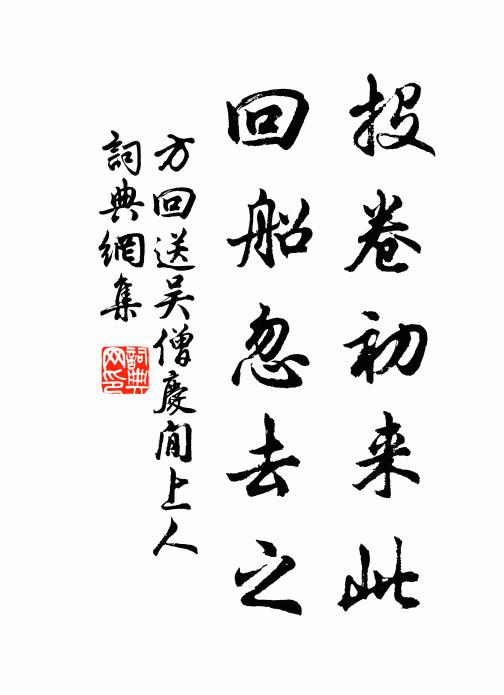 投卷初来此
回船忽去之
方回送吴僧慶閒上人
詞典網集
詞典网印